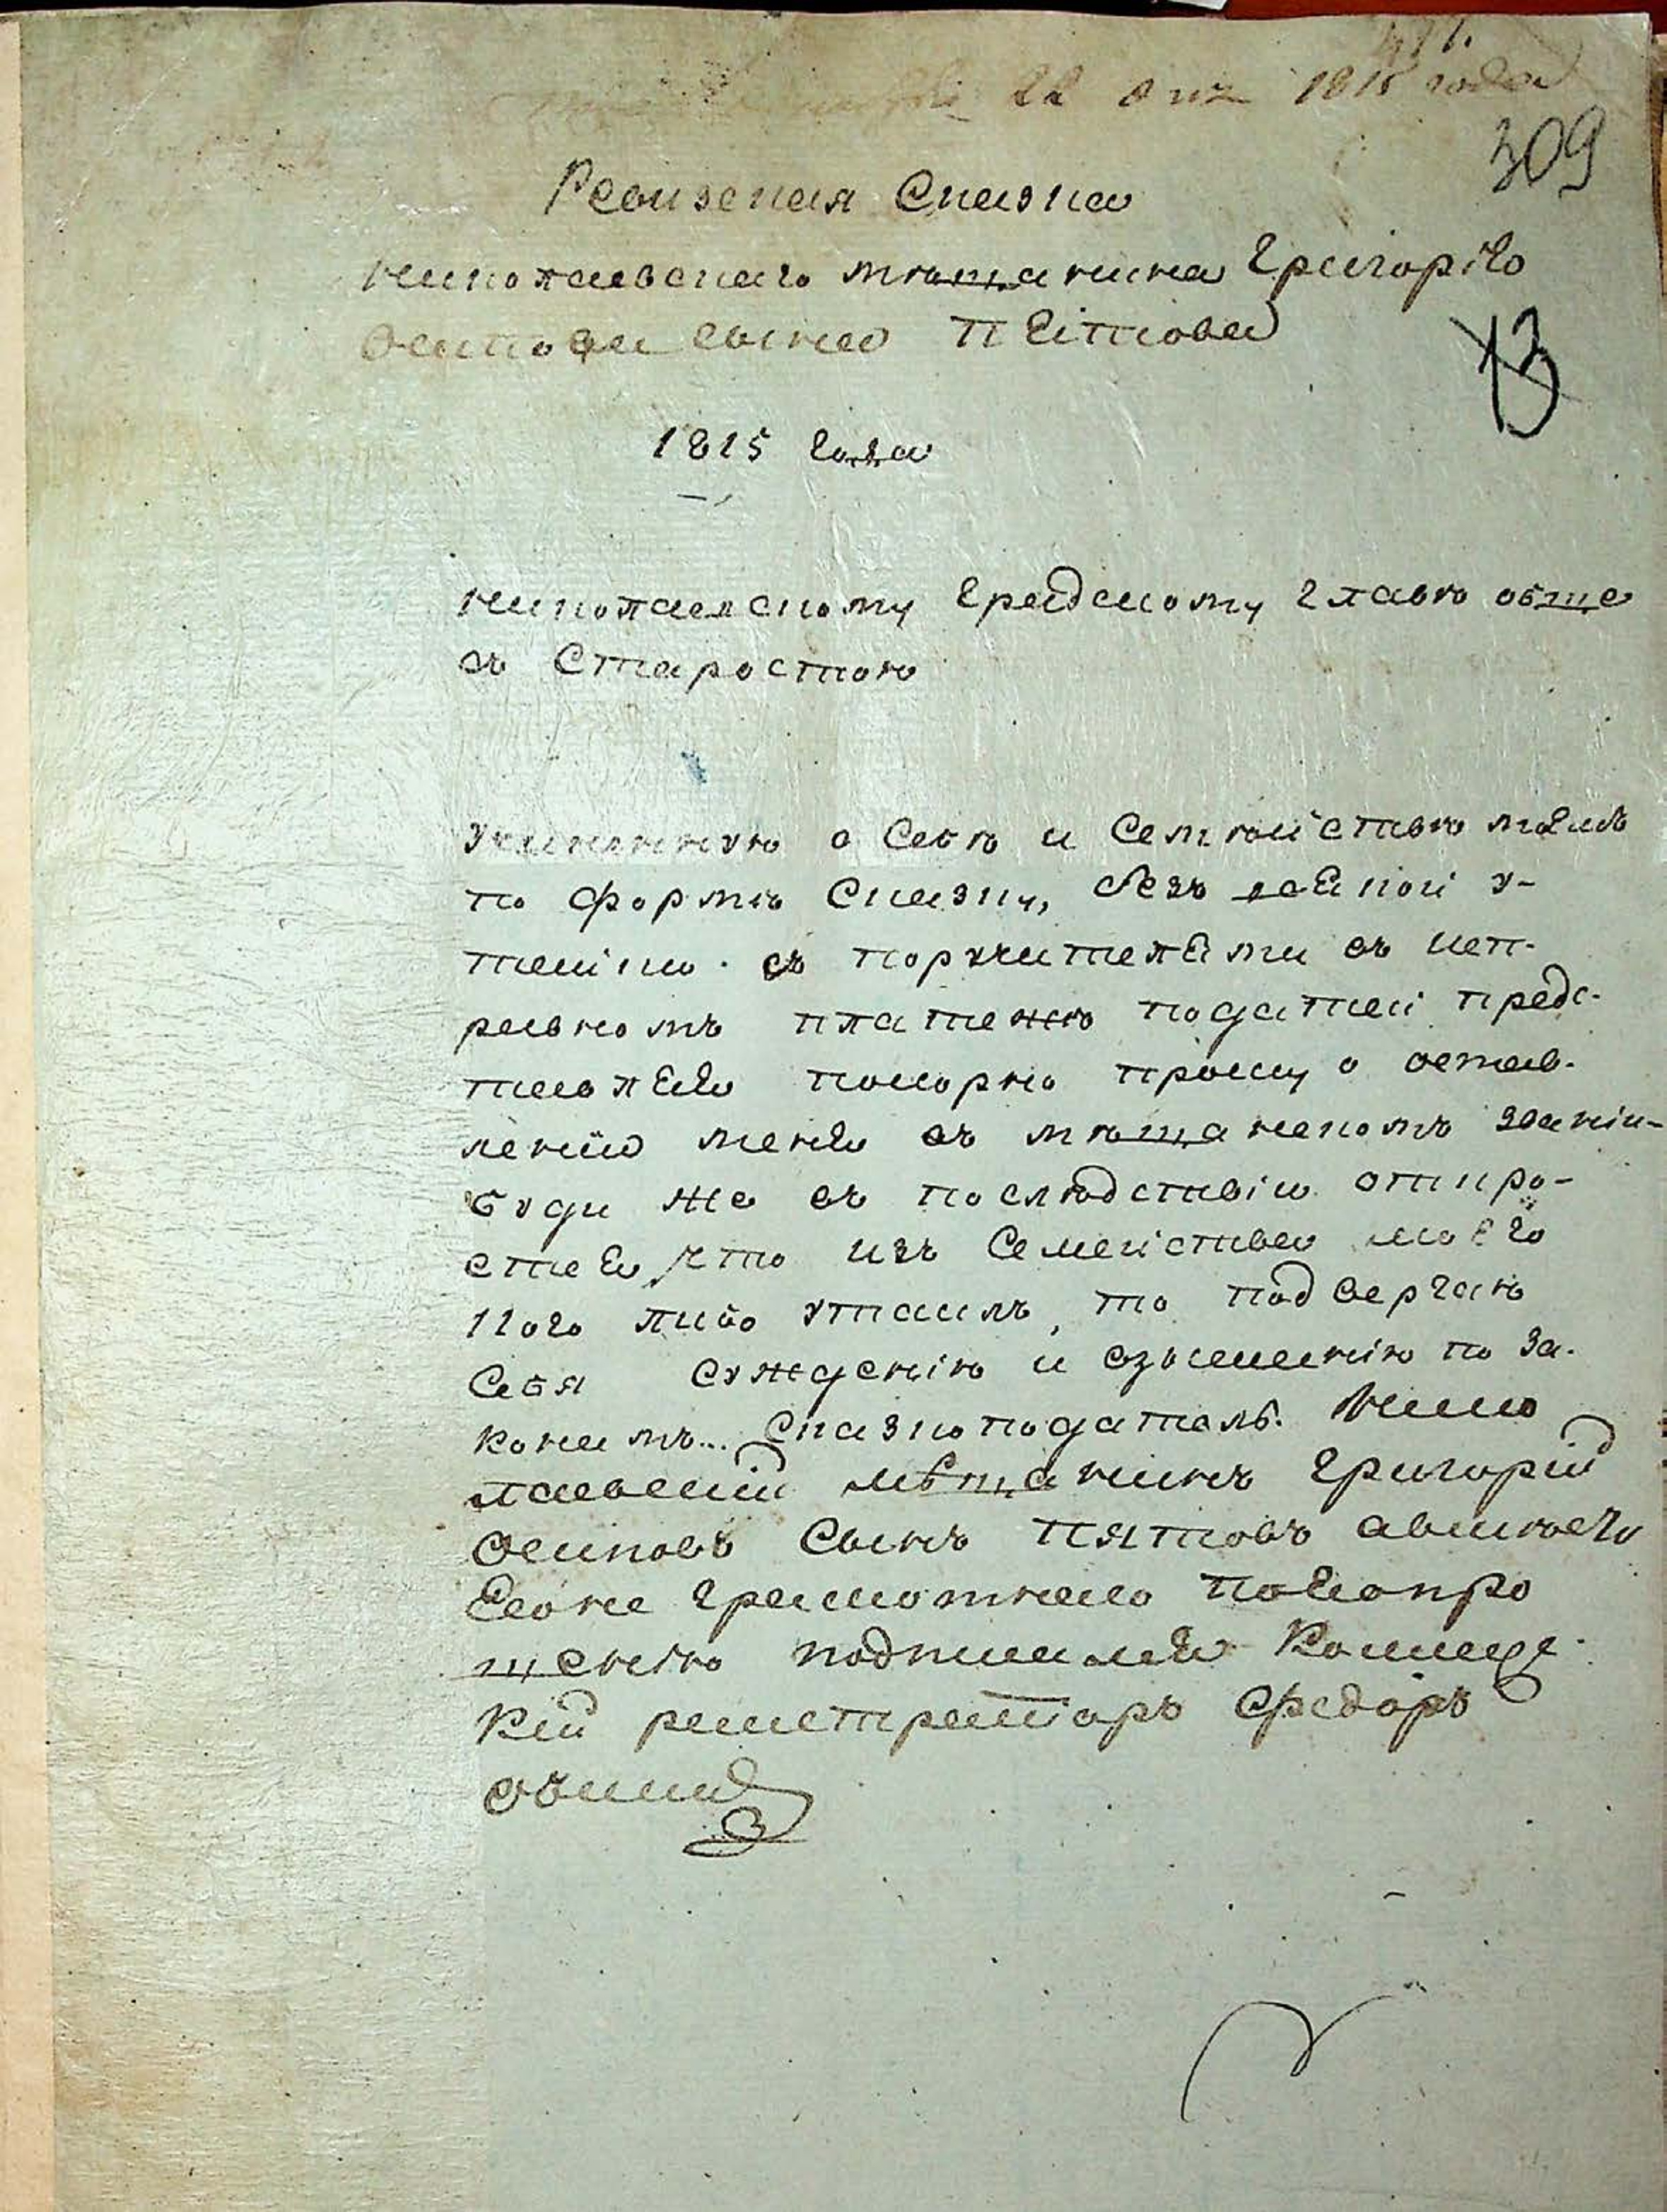 22 1815 года
309
Ревизская Сказка
николаевскаго мѣщанина Григорія
Осипова сына Пятова
13
1815 года
николаевскому Градскому Главѣ обще
съ Старостою
о себѣ и Семѣйствѣ моемъ
по формѣ Сказку, безъ всякой у-
тайки съ поручителями въ исп-
равномъ платежѣ податей предс-
тавляя покорно прошу о остав-
леніи меня въ мѣщанскомъ званіи
буди же въ послѣдствіи откро-
ется что изъ Семейства моего
кого либо утаилъ, то подвергаю
Себя сужденію и взысканію по За-
конамъ... Сказкоподатель. Нико
лаевский мѣщанинъ Григорий
Осиповъ Сынъ Пятовъ авмѣсто
Его не Грамотнаго поЕгопро
щенію подписался Коллеж
кий регистраторъ Федоръ